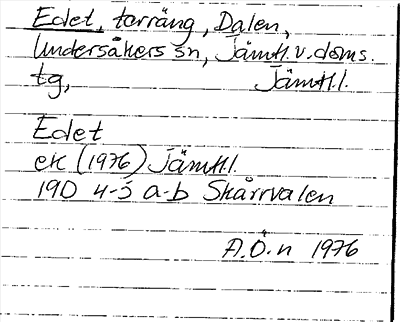 Edet, terräng, Dalen,
Undersåkers sn, Jämtl. v. doms.
tg, Jämtl.l.
Edet
ek (1976) Jämtl.l.
19D 4-5 a-b Skårrvalen
A.Ö.n 1976